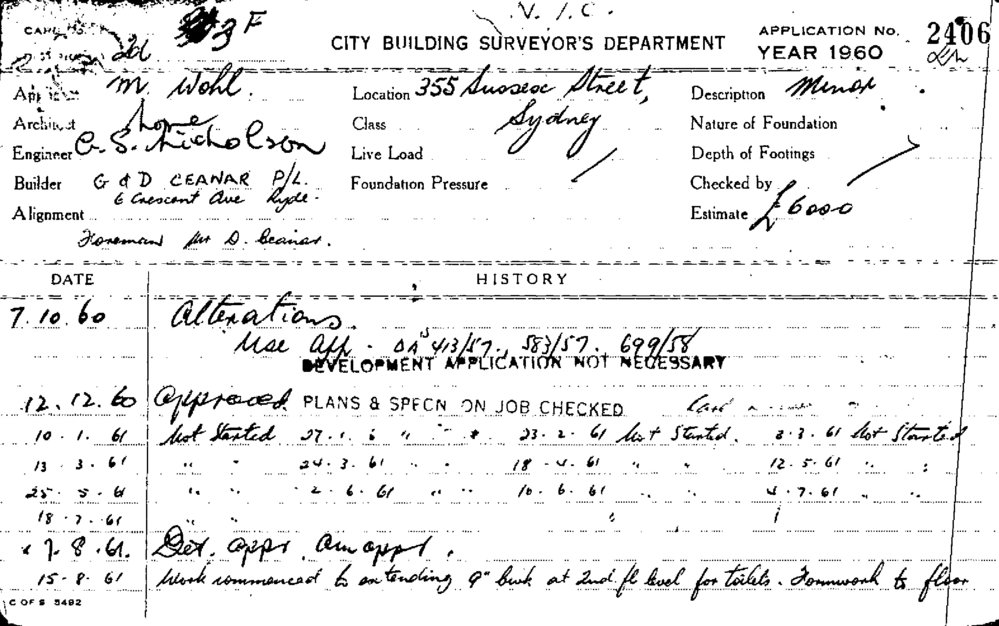 V. I. C.
3F
CITY BUILDING SURVEYOR'S DEPARTMENT
APPLICATION No. 2406
YEAR 1960
M. Wohl. Location 355 Sussex Street, Description Minor
Architect home Class Sydney Nature of Foundation
Engineer G. S. Nicholson Live Load Depth of Footings
Builder G & D CEANAR P/L. Foundation Pressure Checked by
6 Crescent Ave Ryde.
Alignment Estimate £6000
Foreman Mr D. Ceanar.
DATE HISTORY
7.10.60 Alterations.
Use App. DA's 413/57., 583/57. 699/58
DEVELOPMENT APPLICATION NOT NECESSARY
12.12.60 Approved PLANS & SPECN ON JOB CHECKED
10.1.61 Not Started 27.1.6 " " 23.2.61 Not Started. 2.3.61 Not Started
13.3.61 " " 24.3.61 " " 18.4.61 " " 12.5.61 " "
25.5.61 " " 2.6.61 " " 16.6.61 " " 4.7.61 " "
18.7.61 " "
7.8.61. Det. appr. Am appl.
15.8.61 Work commenced to extending 9" bwk at 2nd fl level for toilets. Formwork to floor
C OF S 5492